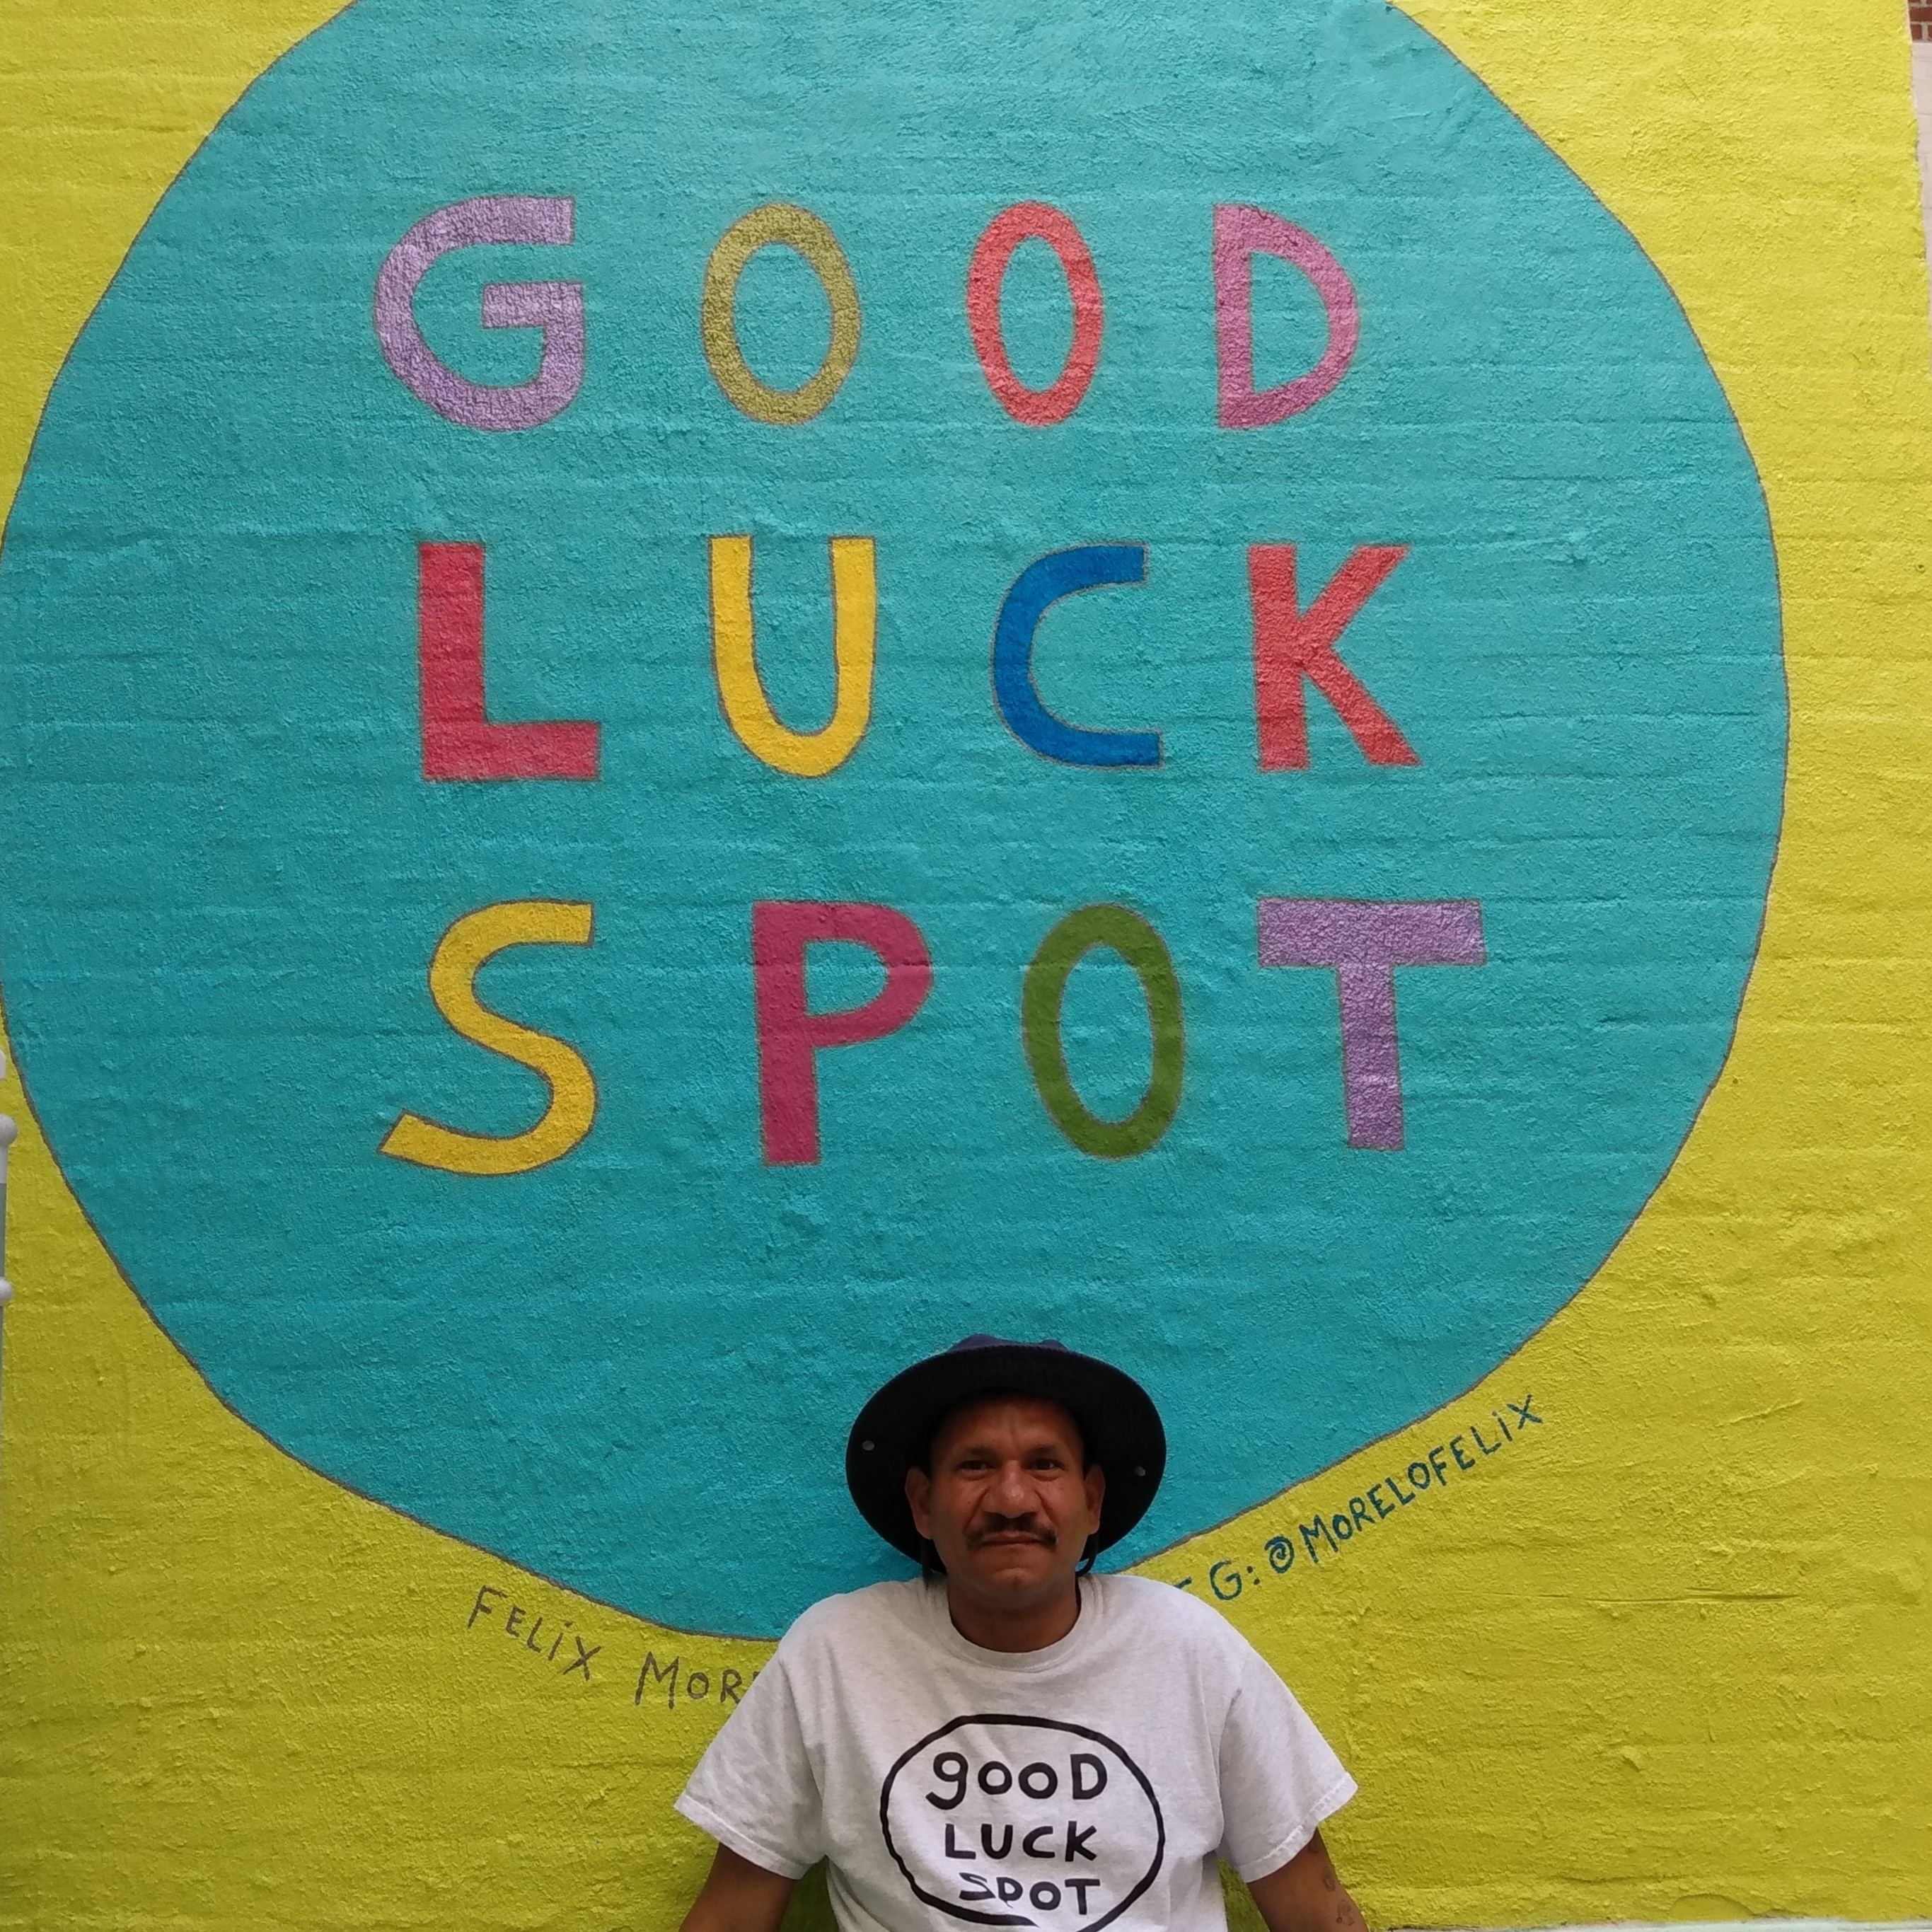 GOOD
LUCK
SPOT
FELIX MOR
G: @MORELOFELIX
gooD
LUCK
SPOT